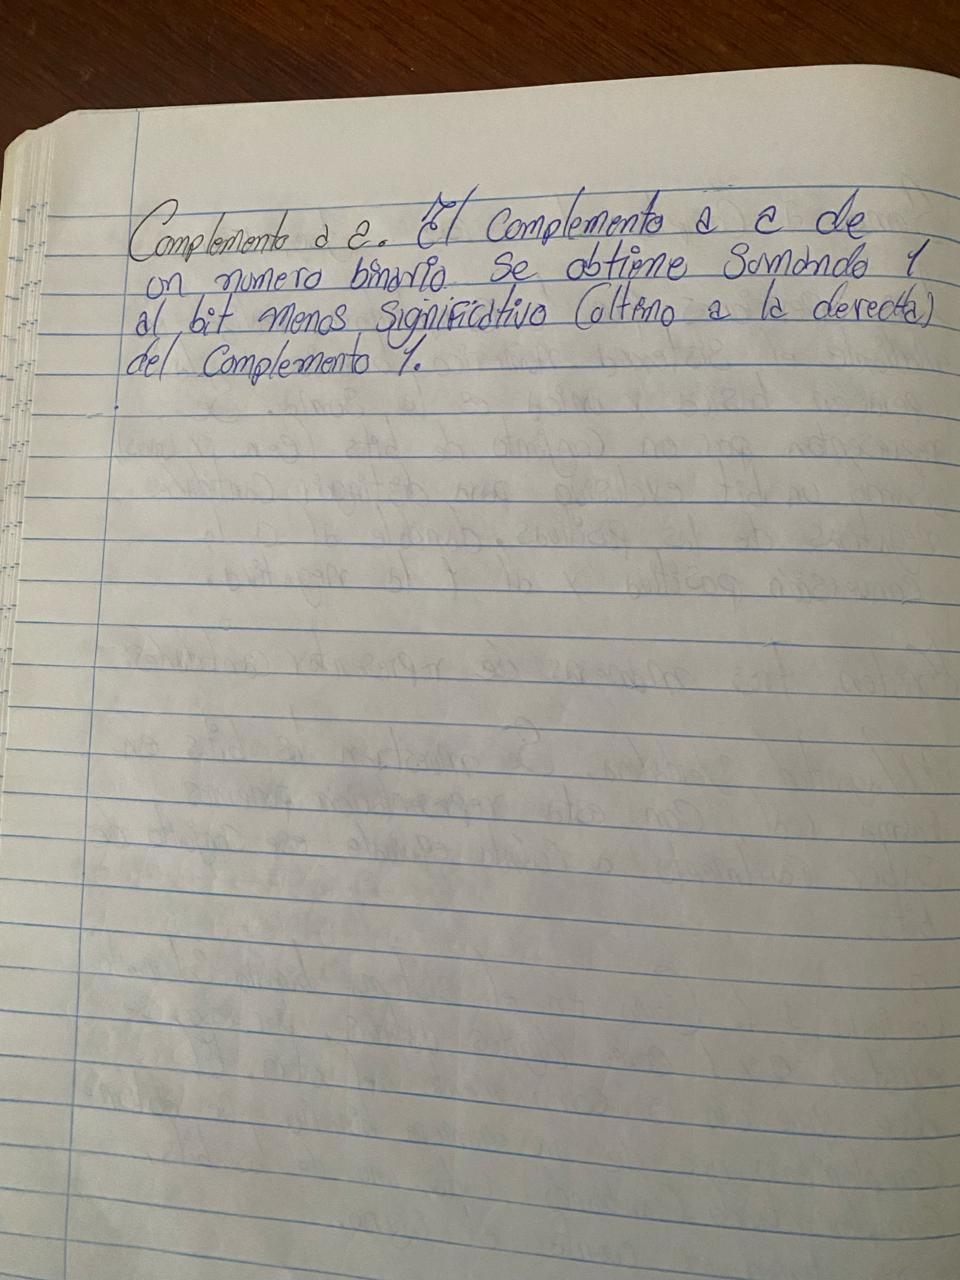 Complemento a 2. El Complemento a 2 de
un numero binario se obtiene Sumando 1
al bit menos significativo (ultimo a la derecha)
del Complemento 1.